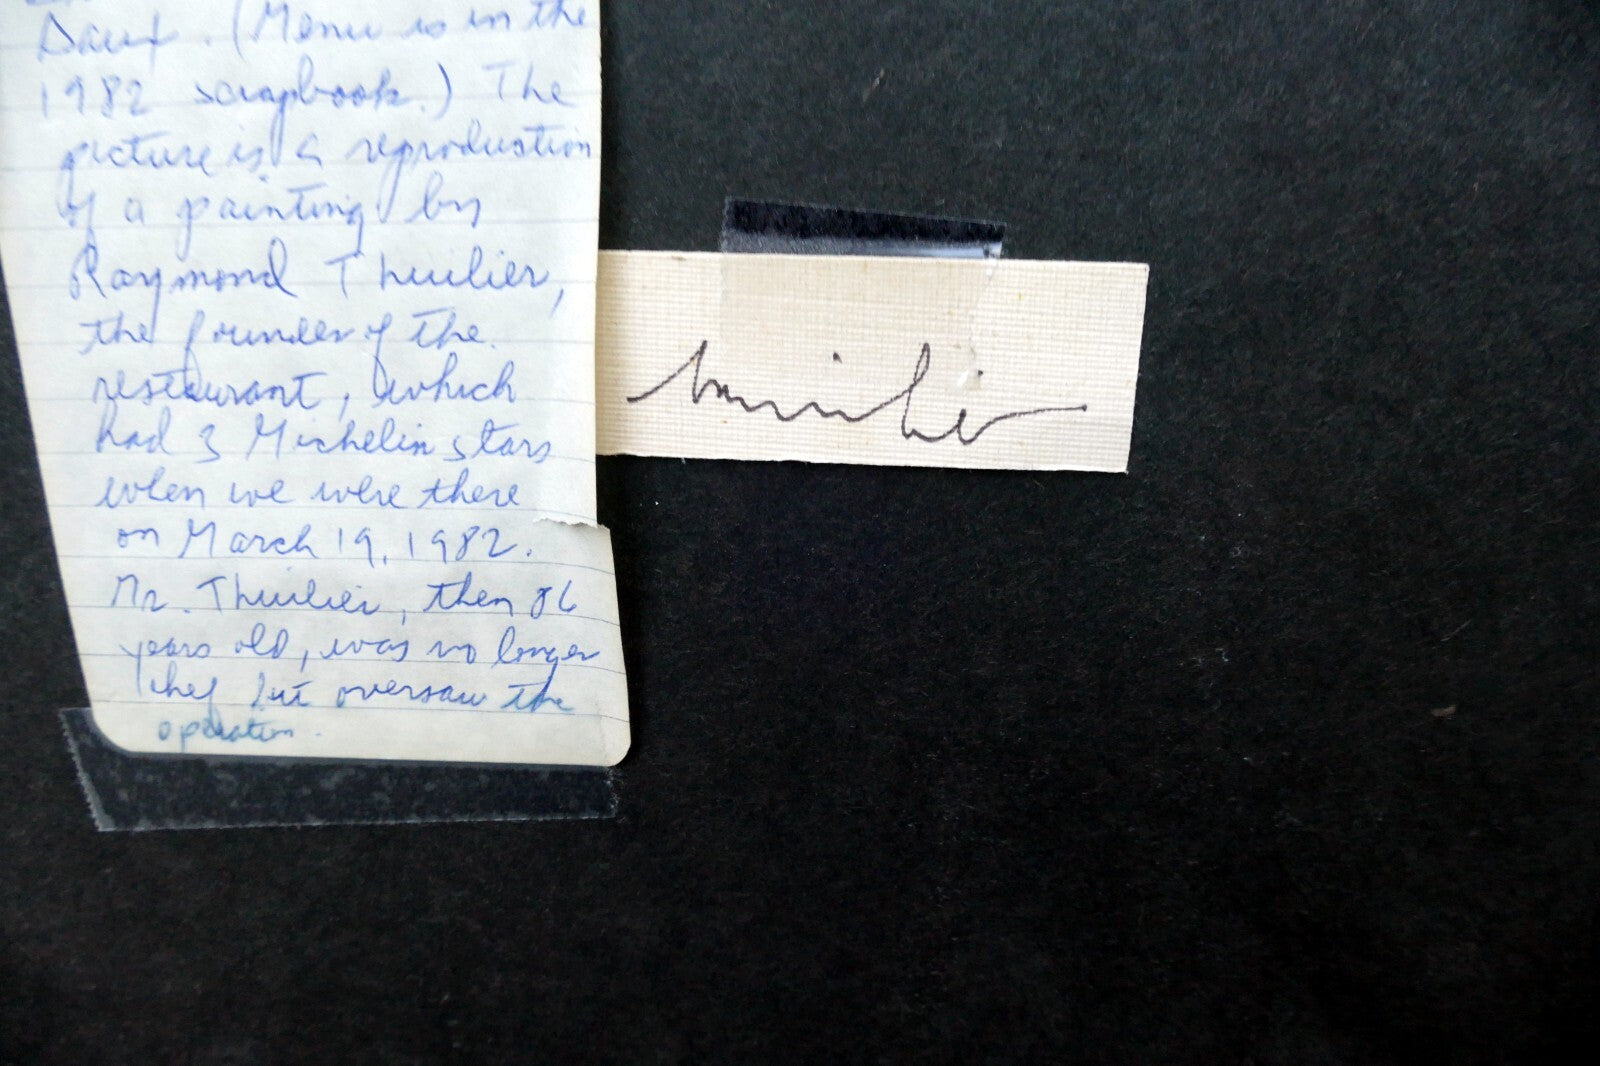 Daux. (Menu is in the
1982 scrapbook.) The
picture is a reproduction
of a painting by
Raymond Thuilier,
the founder of the
restaurant, which
had 3 Michelin stars
when we were there
on March 19, 1982.
Mr. Thuilier, then 86
years old, was no longer
chef but oversaw the
operation.
Thuilier